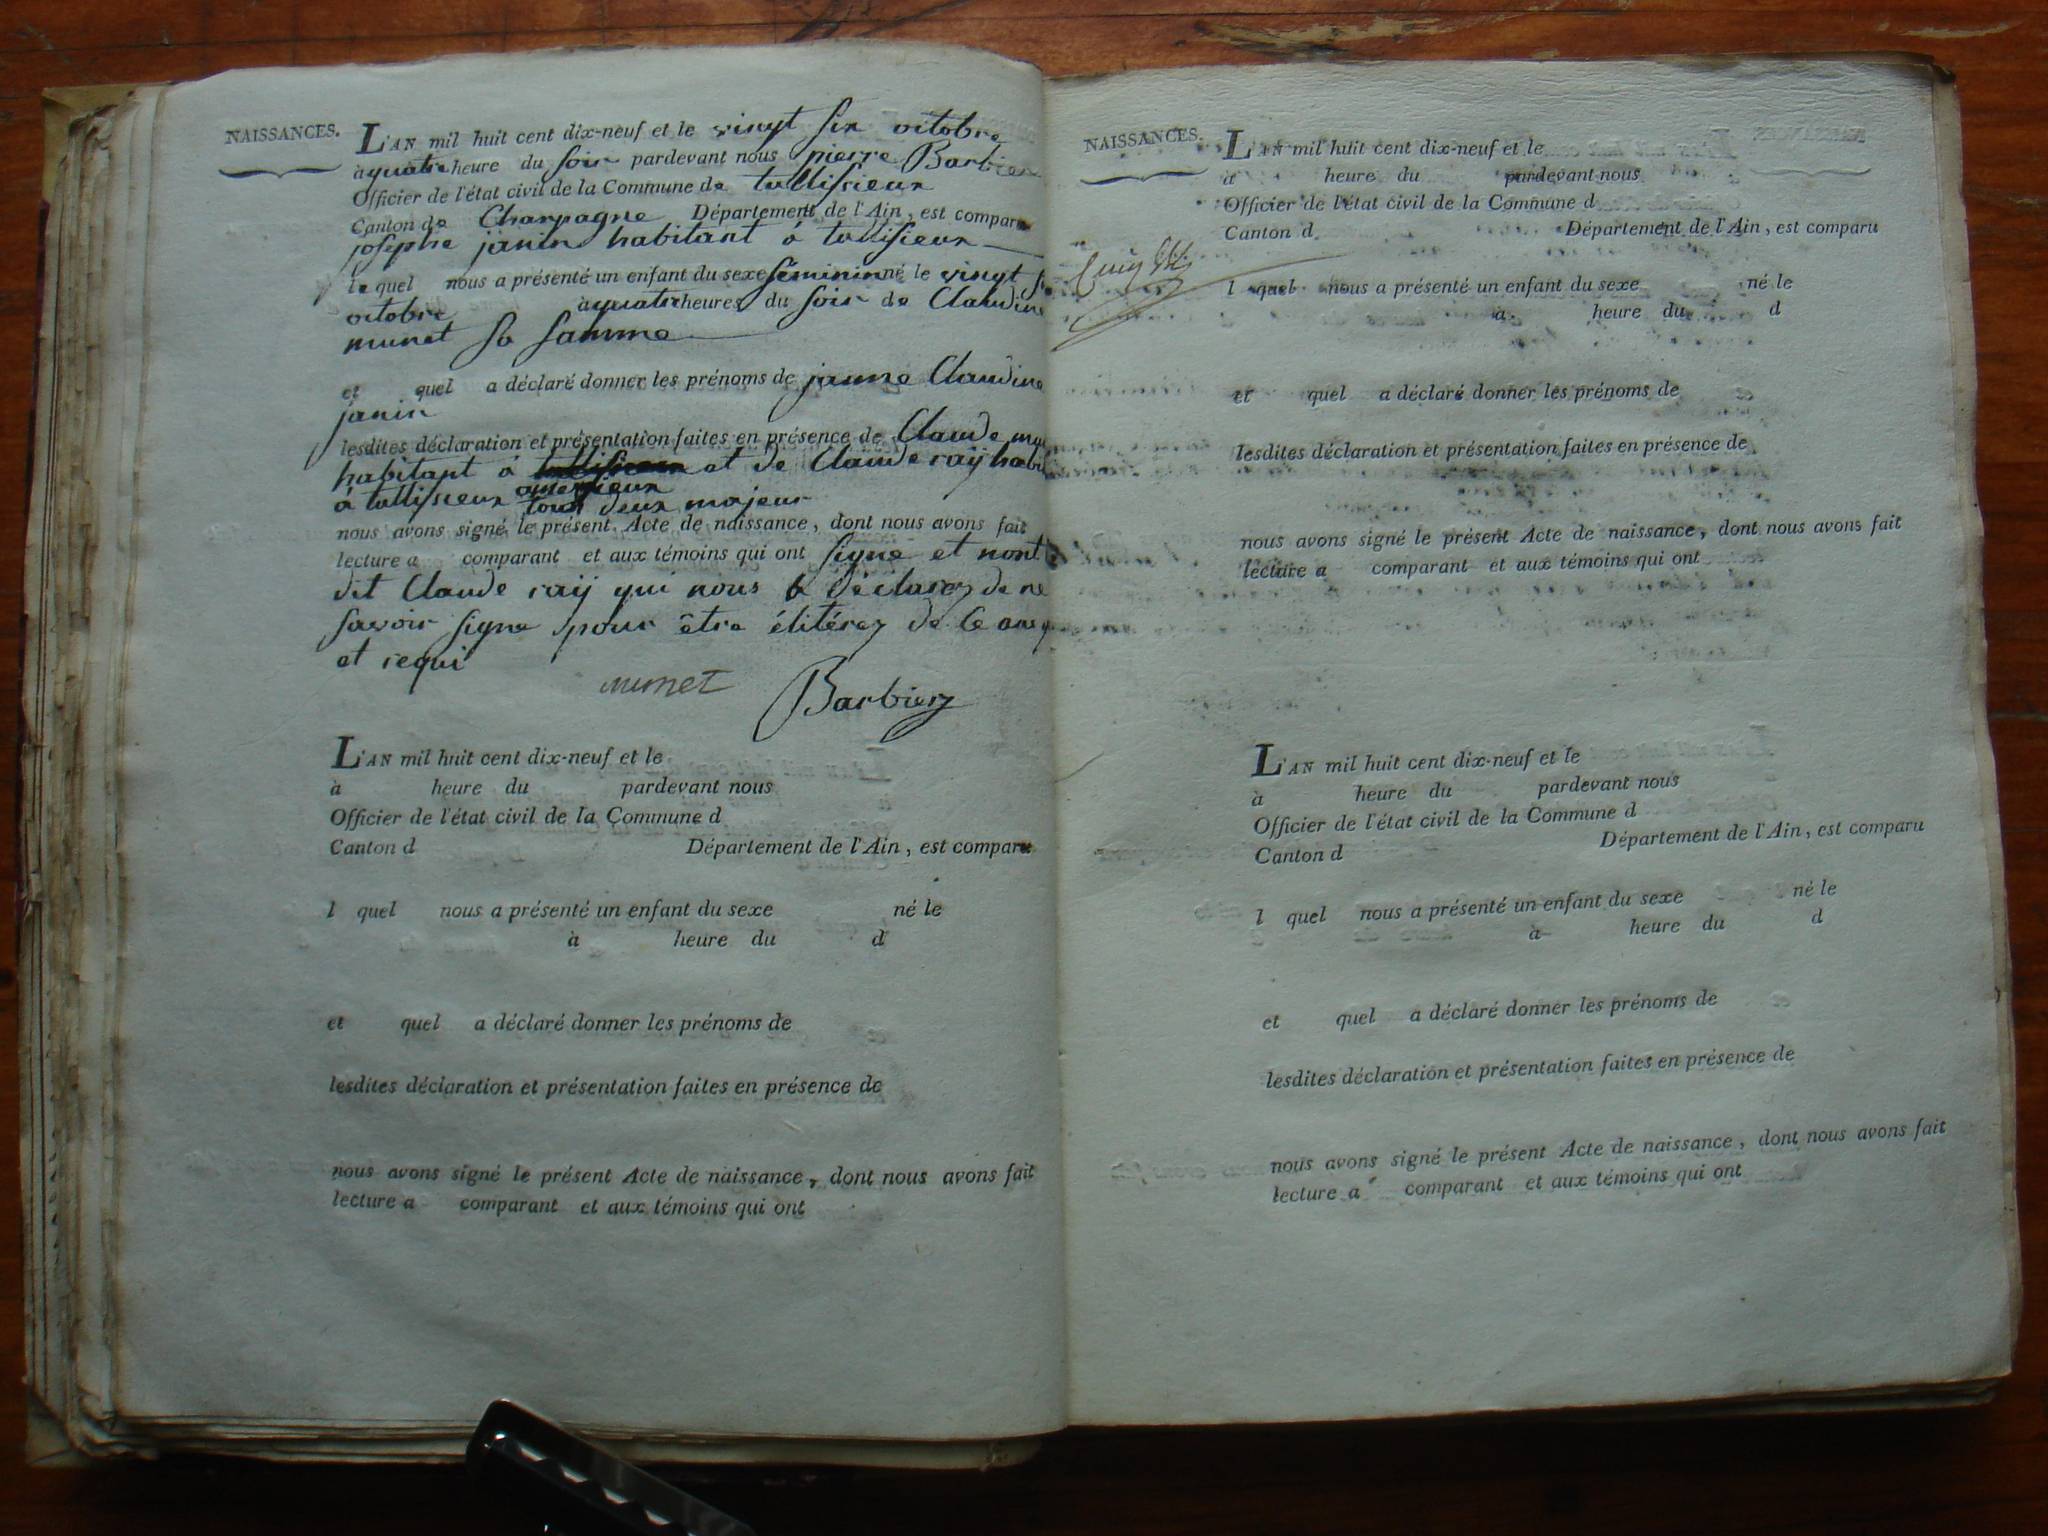 NAISSANCES.
L'AN mil huit cent dix-neuf et le vingt six octobre
à quatre heure du soir pardevant nous pierre Barbier
Officier de l'état civil de la Commune de tallissieux
Canton de Champagne Département de l'Ain, est comparu
josephe janin habitant á tallisieux
le quel nous a présenté un enfant du sexe féminin né le vingt
octobre à quatre heures du soir de Claudine
munet sa famme
et quel a déclaré donner les prénoms de janne Claudine
janin
lesdites déclaration et présentation faites en présence de Claude
habitant á et de Claude raÿ
á tallissieux tous deux majeur
nous avons signé le présent Acte de naissance, dont nous avons fait
lecture a comparant et aux témoins qui ont signe et nont
dit Claude raÿ qui nous a déclarez de ne
savoir signe pour être élitérez de Ce
et requi
munet Barbierz
L'AN mil huit cent dix-neuf et le
à heure du pardevant nous
Officier de l'état civil de la Commune d
Canton d Département de l'Ain, est comparu
l quel nous a présenté un enfant du sexe né le
à heure du d
et quel a déclaré donner les prénoms de
lesdites déclaration et présentation faites en présence de
nous avons signé le présent Acte de naissance, dont nous avons fait
lecture a comparant et aux témoins qui ont
NAISSANCES.
L'AN mil huit cent dix-neuf et le
à heure du pardevant nous
Officier de l'état civil de la Commune d
Canton d Département de l'Ain, est comparu
l quel nous a présenté un enfant du sexe né le
à heure du d
et quel a déclaré donner les prénoms de
lesdites déclaration et présentation faites en présence de
nous avons signé le présent Acte de naissance, dont nous avons fait
lecture a comparant et aux témoins qui ont
L'AN mil huit cent dix-neuf et le
à heure du pardevant nous
Officier de l'état civil de la Commune d
Canton d Département de l'Ain, est comparu
l quel nous a présenté un enfant du sexe né le
à heure du d
et quel a déclaré donner les prénoms de
lesdites déclaration et présentation faites en présence de
nous avons signé le présent Acte de naissance, dont nous avons fait
lecture a comparant et aux témoins qui ont